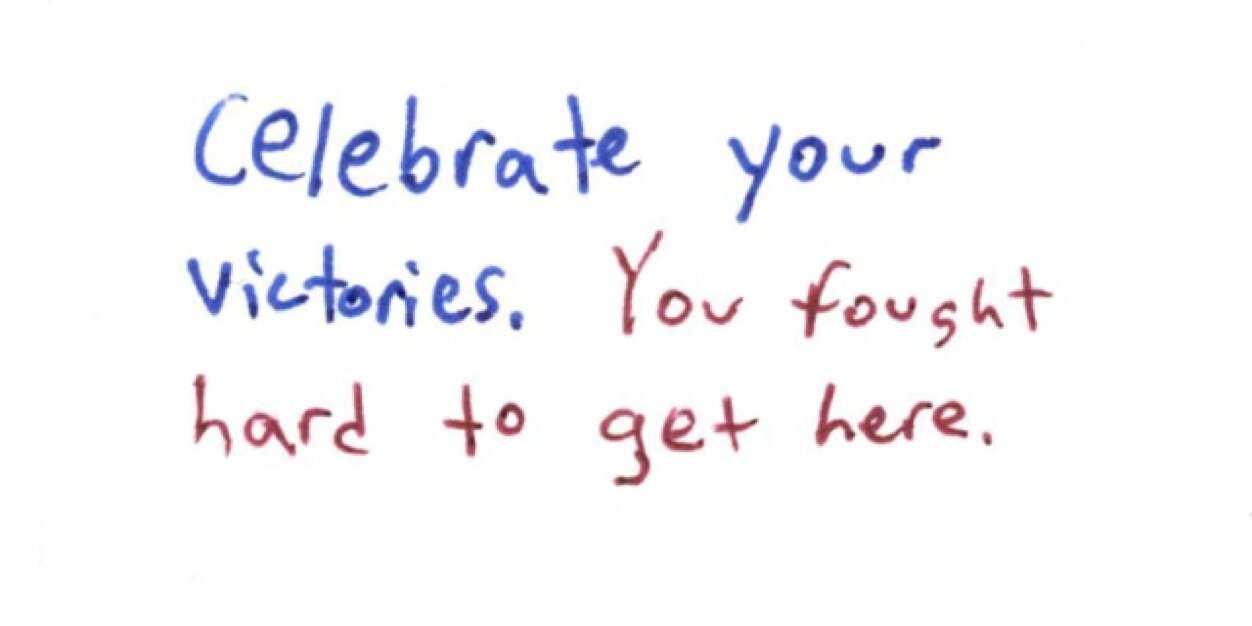 Celebrate your
victories. You fought
hard to get here.